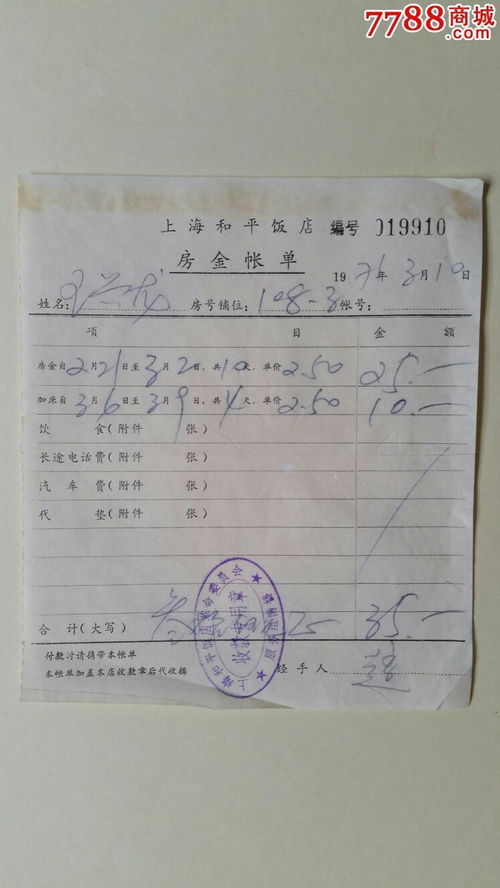 7788商城
.com
上海和平饭店 编号 019910
房金帐单
1971年3月10日
姓名: 房号铺位: 108-3 帐号:
项 目 金 额
房金自2月21日至3月2日, 共10天, 单价2.50 25.—
加床自3月6日至3月9日, 共4天, 单价2.50 10.—
饮 食(附件 张)
长途电话费(附件 张)
汽 车 费(附件 张)
代 垫(附件 张)
合 计(大写) 35.—
付款时请携带本帐单
本帐单加盖本店收款章后代收据
经手人
上海和平饭店革命委员会
收款专用章